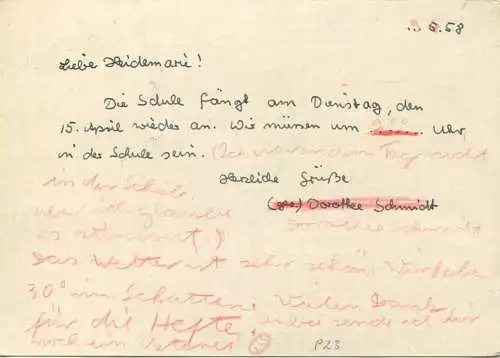 5.58
Liebe Heidemarie!
Die Schule fängt am Dienstag, den
15. April wieder an. Wir müssen um 9⁰⁰ Uhr
in der Schule sein. (Ich war an dem Tag nicht
in der Schule,
aber ich glaube
es stimmt.)
Herzliche Grüße
(gez.) Dorothee Schmidt
Dorothee Schmidt
Das Wetter ist sehr schön. Wir haben
30° im Schatten. Vielen Dank
für die Hefte. sende ich dir
noch ein
P23